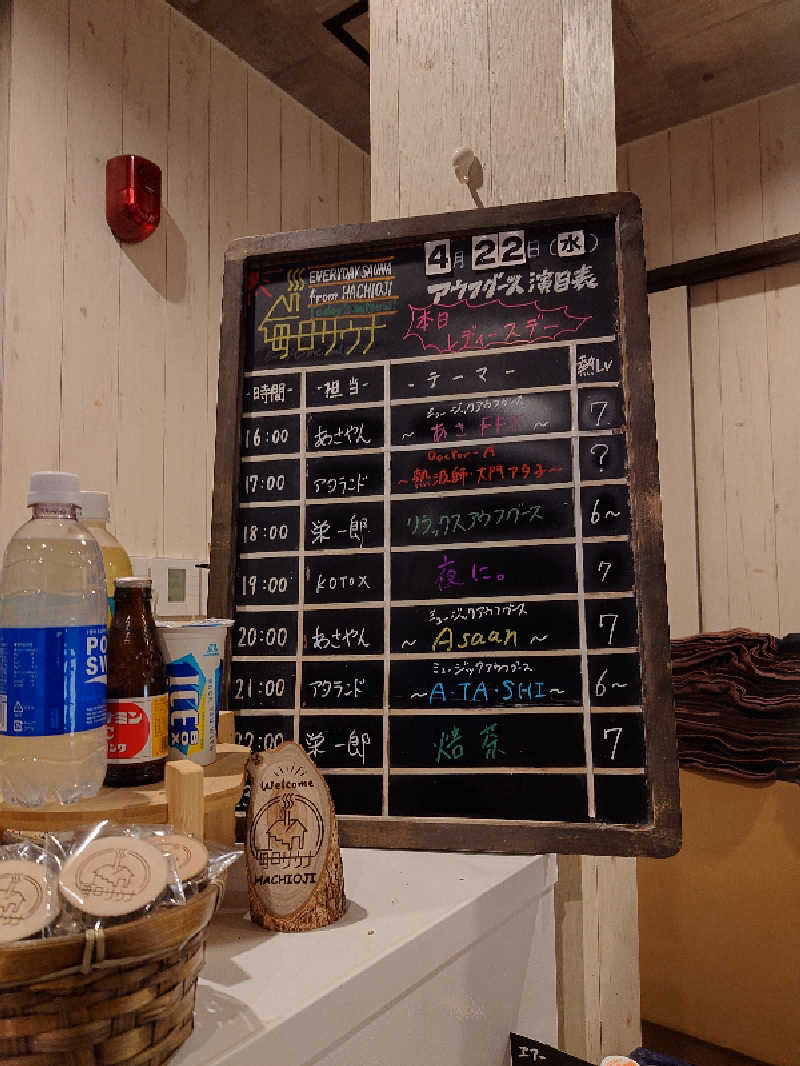 EVERYDAY SAUNA
from HACHIOJI
毎日サウナ
4月22日(水)
アウフグース演目表
本日
レディースデー
-時間- -担当- -テーマ- 熱Lv
ミュージックアウフグース
16:00 あさやん 7
Doctor-A
17:00 アタランド ~熱波師・大門アタ子~ ?
18:00 栄一郎 リラックスアウフグース 6~
19:00 KOTOX 夜に。 7
ミュージックアウフグース
20:00 あさやん ~Asaan~ 7
ミュージックアウフグース
21:00 アタランド ~A・TA・SHI~ 6~
22:00 栄一郎 焙茶 7
ICE
BOX
Welcome
毎日サウナ
HACHIOJI